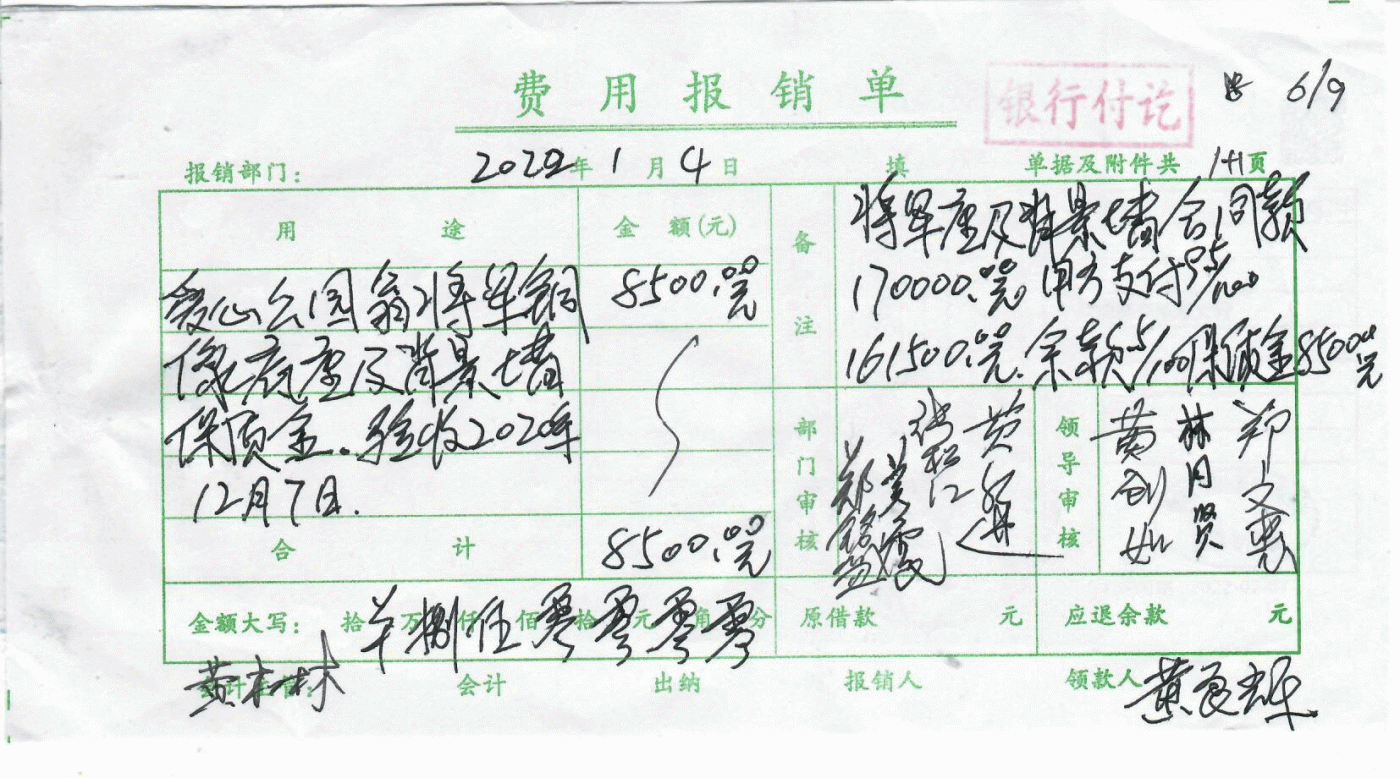 费用报销单
银行付讫
6/9
报销部门: 2022年1月4日 填 单据及附件共 1+1页
用途 金额(元) 备注
将军座及背景墙合同款
170000.00元 甲方支付95/100
161500.00元.余款5/100保质金8500.00元
爱心公园翁将军铜 8500.00元
像底座及背景墙
保质金.验收2020年
12月7日.
部门审核
领导审核
林月贤
合计 8500.00元
金额大写: 拾万捌仟零佰零拾零元零角分 原借款 元 应退余款 元
黄木林 会计 出纳 报销人 领款人 黄良辉